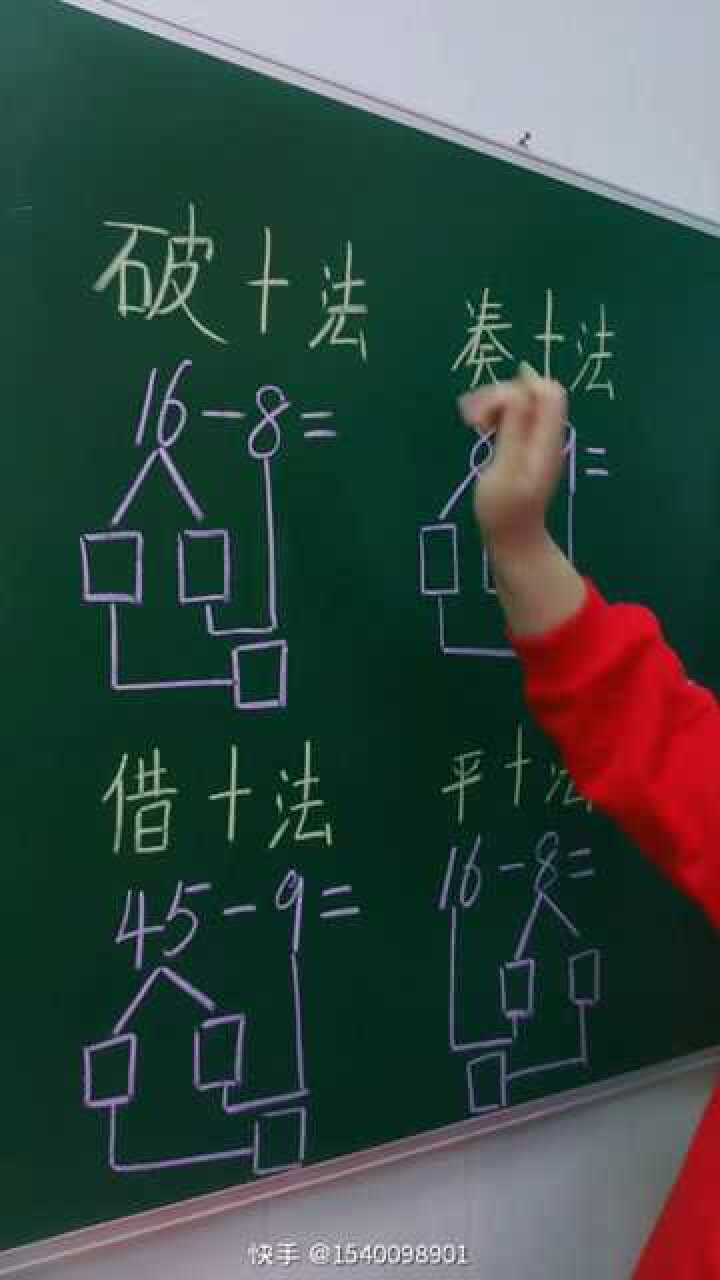 破十法
16-8=
凑十法
8 9=
借十法
45-9=
平十法
16-8=
快手 @1540098901